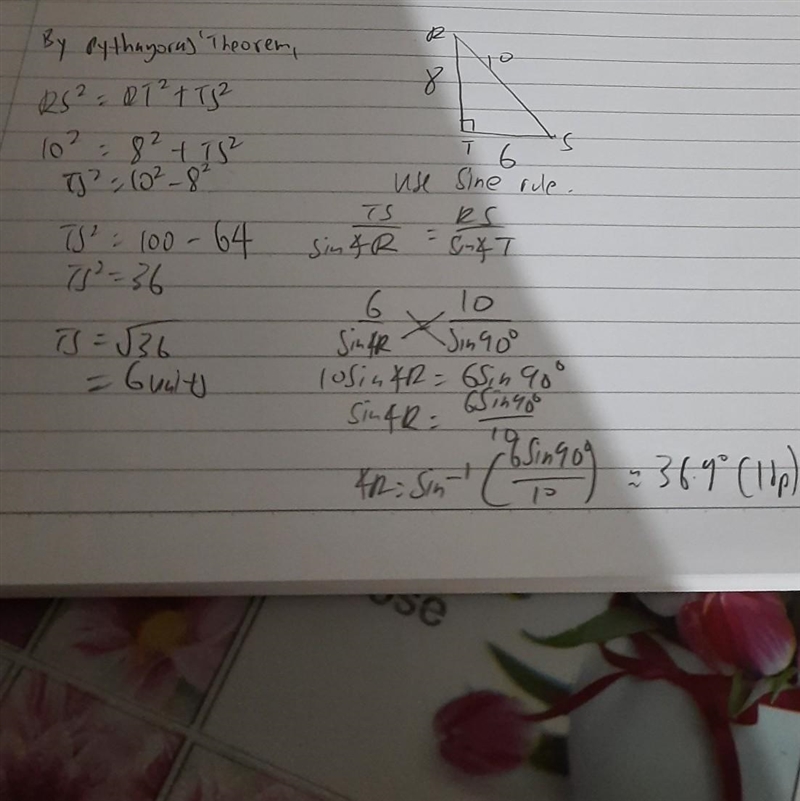 By Pythagoras' Theorem,
RS² = RT² + TS²
10² = 8² + TS²
TS² = 10² - 8²
TS² = 100 - 64
TS² = 36
TS = √36
= 6 units
R
10
8
T
6
S
Use Sine rule.
TS/sin∡R = RS/sin∡T
6/sin∡R 10/sin90°
10sin∡R = 6sin90°
sin∡R = 6sin90°/10
∡R = sin⁻¹(6sin90°/10) ≈ 36.9° (1dp)